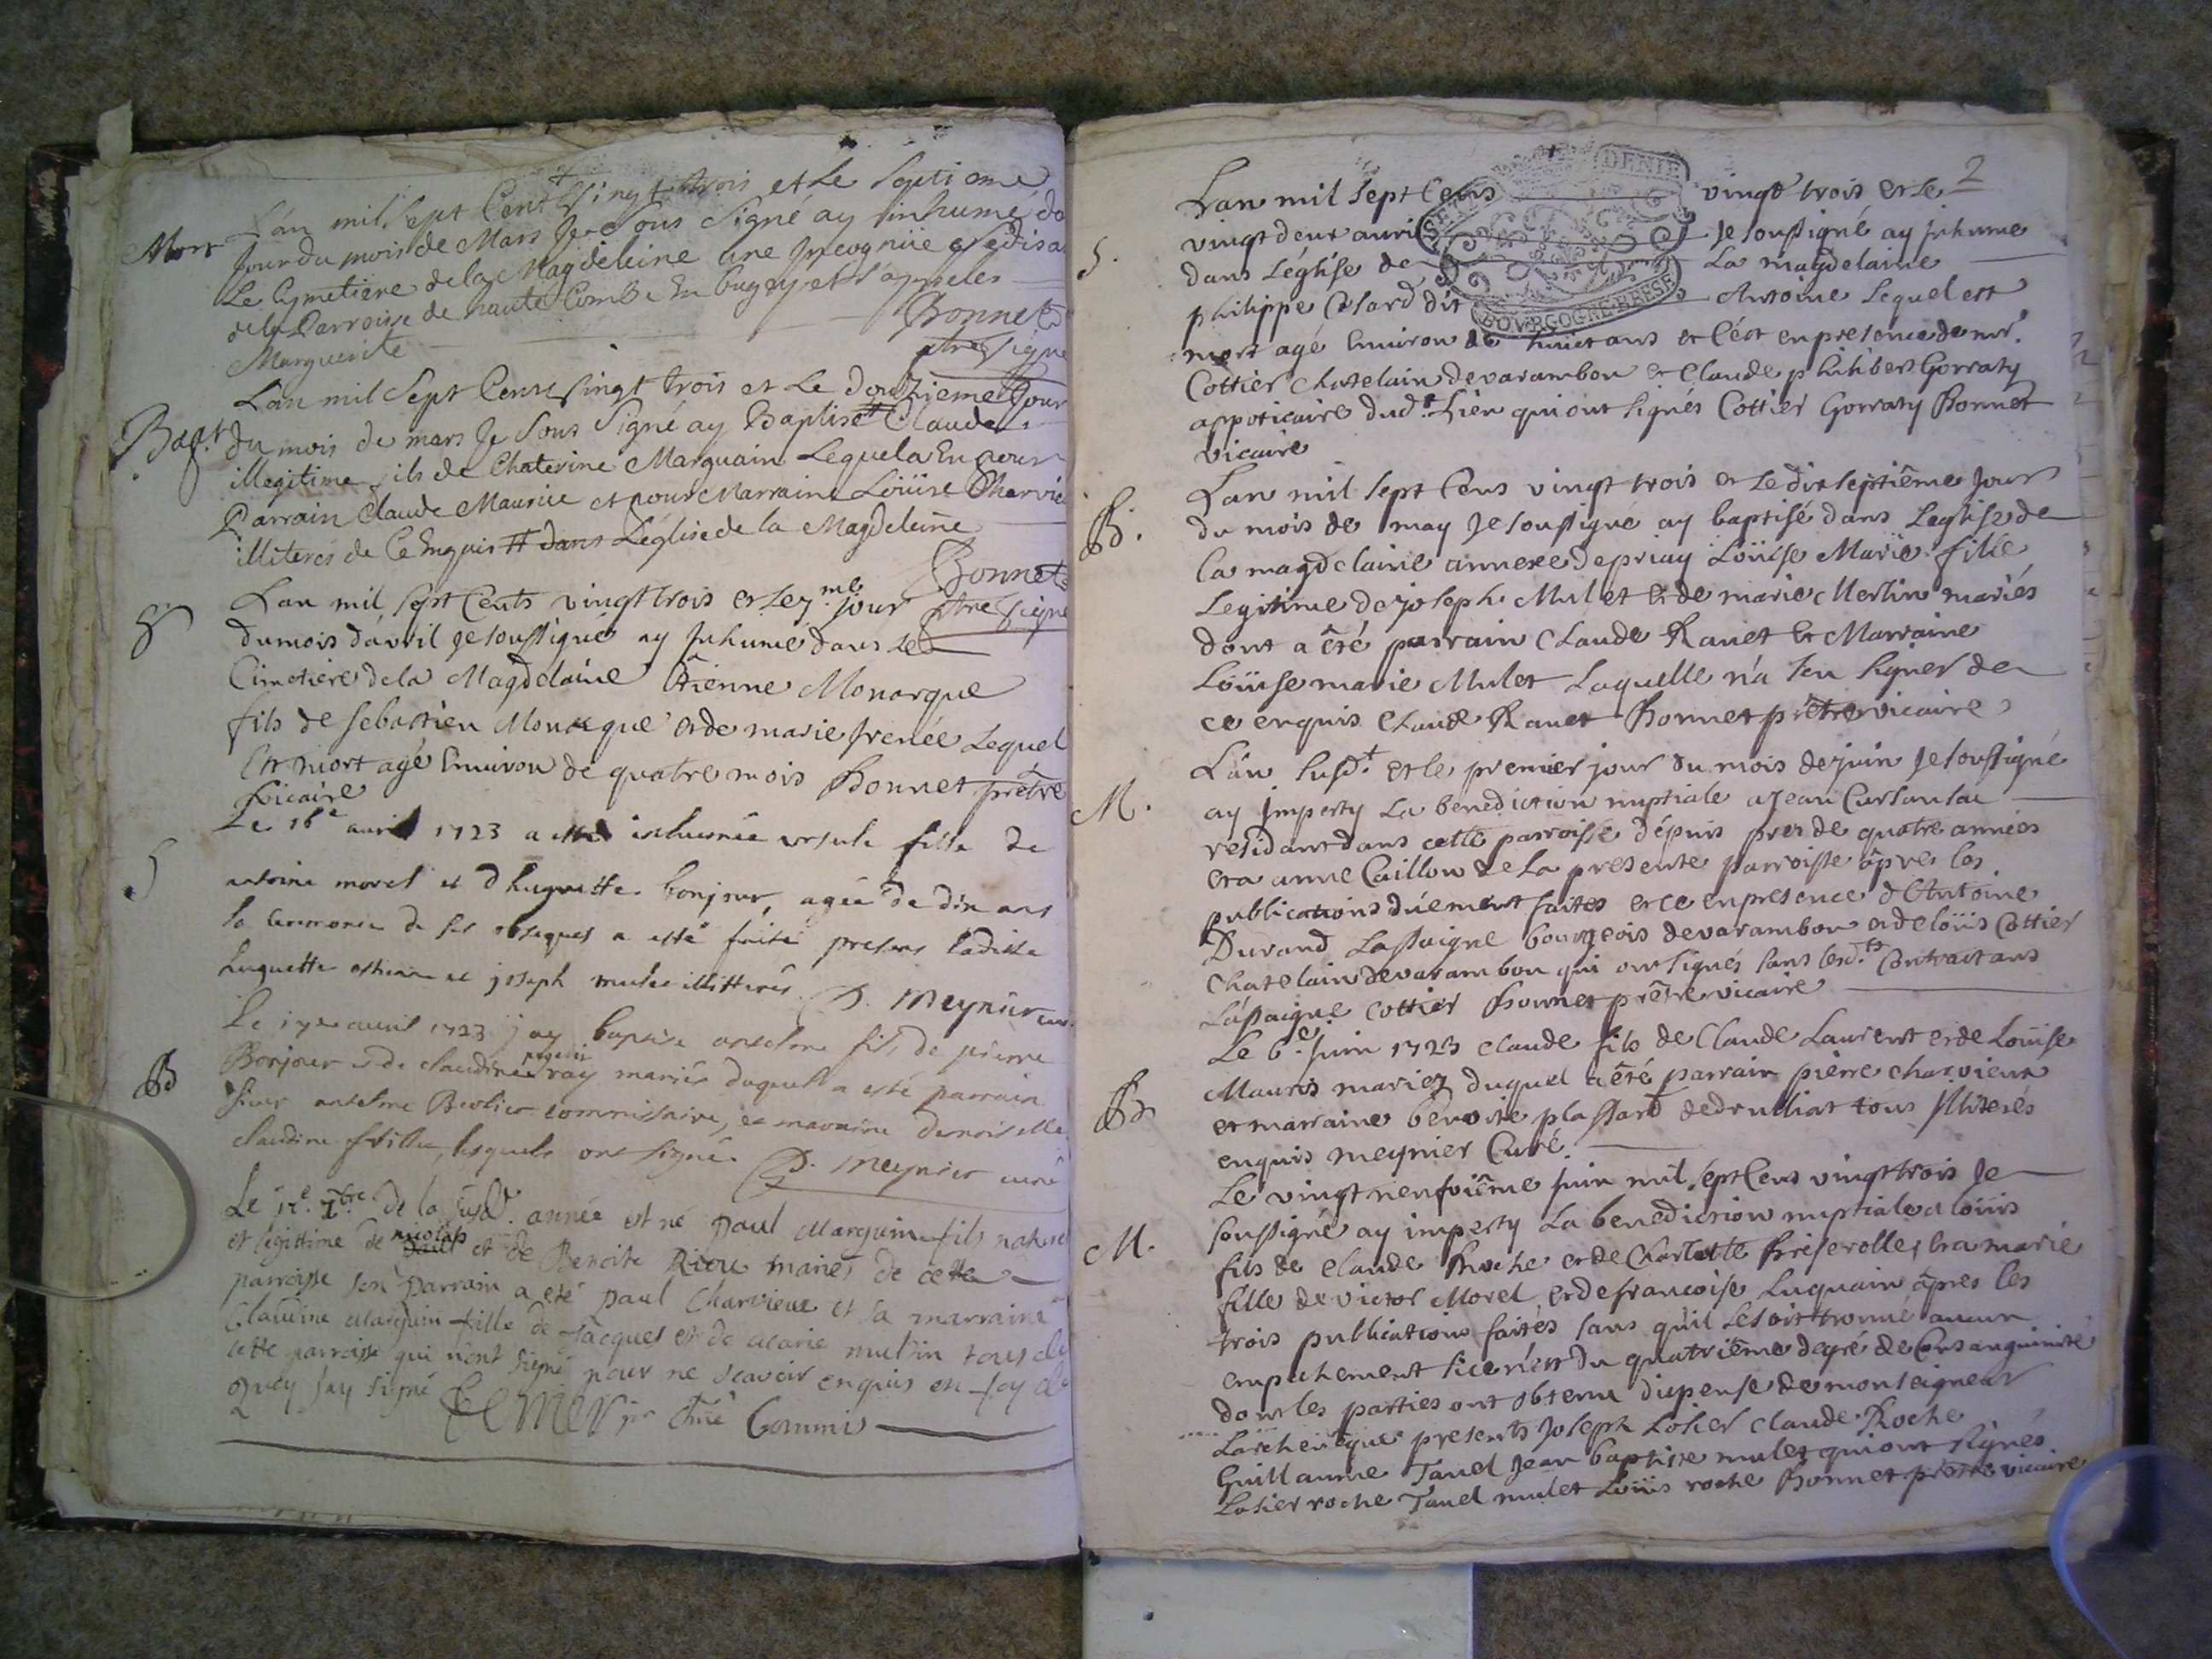 L'an mil sept Cent vingt trois et le septieme
Mort
Jour du mois de Mars Je sous signé ay inhumé da
Le Cymetiere de la Magdeleine une Incognüe se disa
de la Parroisse de haute Combe En bugey et s'appeler
Marguerite
Bonnet
ptre signé
L'an mil sept Cent vingt trois et Le douzieme Jour
Bapt.
du mois de mars Je sous signé ay Baptisé Claude
illegitime fils de Chaterine Marguain Lequel a Eu pour
Parrain Claude Maurice et pour Marraine Loüise Charvie
illiterés de Ce Enquis dans L'église de la Magdeleine
Bonnet
ptre signé
L'an mil sept Cents vingt trois et le me jour
du mois d'avril Je soussigné ay Inhumé dans le
Cimetiere de la Magdelaine Etienne Monarque
fils de sebastien Monarque et de marie frenée Lequel
Est mort agé Environ de quatre mois Bonnet prêtre
vicaire
S
Le 16e avril 1723 a esté inhumée ursule fille de
antoine morel et d huguette bonjour, agée de dix ans
la ceremonie de ses obseques a esté faite presens ladite
huguette et joseph mulet illitterés. D. Meynier curé
B
Le 17e avril 1723 j ay baptisé anselme fils de pierre
Bonjour et de claudine ray mariés duquel a esté parrain
sieur anselme Berlier commissaire, et maraine demoiselle
claudine lesquels ont signé. D. Meynier curé
Le 12e. 7bre. de la susd. année est né paul Marguin fils naturel
et legittime de paul nicolas et de Benoite Riou mariés de cette
parroisse son parrain a eté paul Charvieux et sa marraine
Claudine Marguin fille de Jacques et de Marie mulsin tous de
cette parroisse qui n'ont signé pour ne scavoir enquis en foy de
quoy J'ay signé Commis
2
DENIE
BOURGOGNE BRESSE
L'an mil sept Cens vingt trois et le
S.
vingt deux avril Je soussigné ay inhumé
dans L'église de La magdelaine
philippe Césard dit Antoine lequel est
mort agé Environ de huict ans et C'ést en presence de mr.
Cottier Chatelain de varambon et Claude philibert Gorraty
appoticaire dud. Lieu qui ont signés Cottier Gorraty Bonnet
vicaire
L'an mil sept Cens vingt trois et le dix septiême jour
B.
du mois de may Je soussigné ay baptisé dans L'église de
la magdelaine annexe de priay Loüise Marie fille
Legitime de joseph Mulet & de marie Merlin mariés
dont a êté parrain Claude Ravet Et Marraine
Loüise marie Mulet Laquelle n'a seu signer de
ce enquis Claude Ravet Bonnet prêtre vicaire
L'an susd.t et le premier jour du mois de juin Je soussigné
M.
ay imperty La benediction nuptiale a Jean
residant dans cette parroisse dépuis pres de quatre années
et a anne Caillon de La presente parroisse âpres les
publications dúement faites et ce en presence d'Antoine
Durand Lassaigne bourgeois de varambon et de loüis Cottier
Chatelain de varambon qui ont signés sans lesd.ts Contractans
Lassaigne Cottier Bonnet prêtre vicaire
Le 6e. Juin 1723 Claude fils de Claude Laurent et de Loüise
B
Mauris mariez duquel a êté parrain pierre charvieux
et marraine benoite plassard de druilliat tous illiterés
enquis meynier Curé.
Le vingt neufviême juin mil sept Cens vingt trois Je
soussigné ay imperty La benediction nuptiale a loüis
M.
fils de Claude Roche et de Charlotte et a marie
fille de victor Morel et de francoise Luquain âpres les
trois publications faites sans qu'il se soit trouvé aucun
empechement si ce n'est du quatriême degré de Consanguinité
dont les parties ont obtenu dispense de monseigneur
Larcheveque presents joseph Losier Claude Roche
Guillaume Tavel Jean baptiste mulet qui ont signés
Losier roche Tavel mulet Loüis roche Bonnet prêtre vicaire